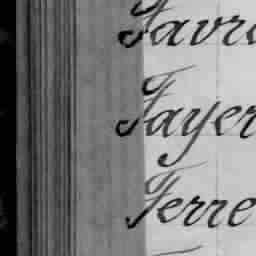 Favre
Fayer
Ferre